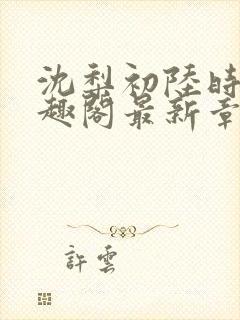 沈梨初陸時
趣閣最新章
許雲